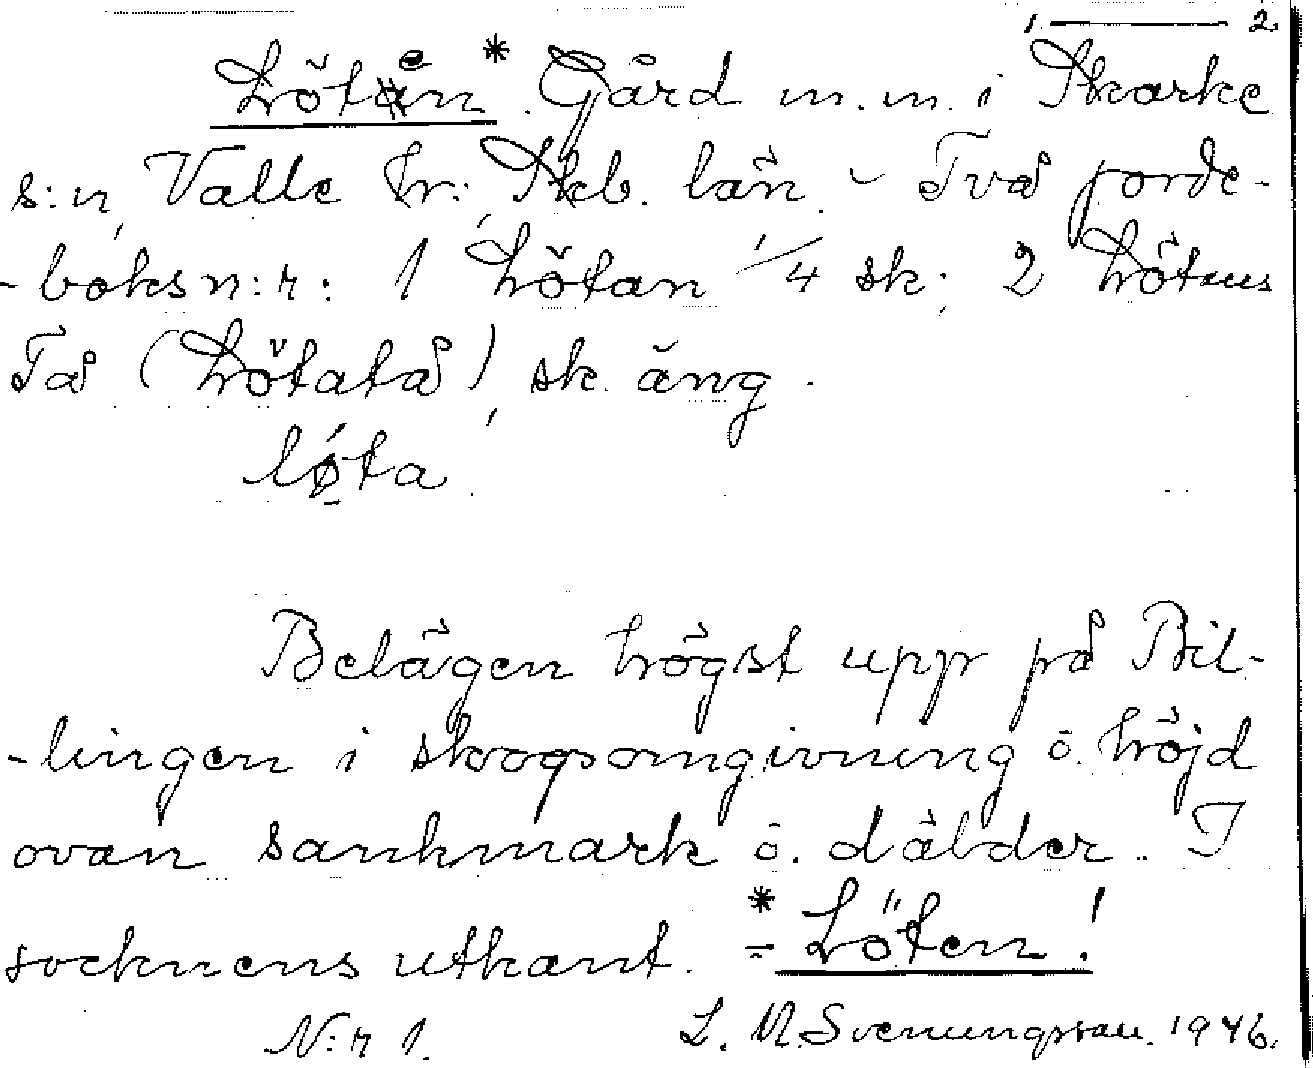 1. ——— 2.
Löten * Gård m.m. i Skarke
s:n, Valle hr., Skb. län. - Två jorde-
-boksn:r: 1 Lötan 1/4 sk; 2 Lötens
Tå (Lötatå), sk. äng.
lø̀ta
Belägen högst upp på Bil-
-lingen i skogsomgivning o. höjd
ovan sankmark o. dälder. I
socknens utkant. * = Löten!
N:r 1. L. M. Svenungsson. 1946.